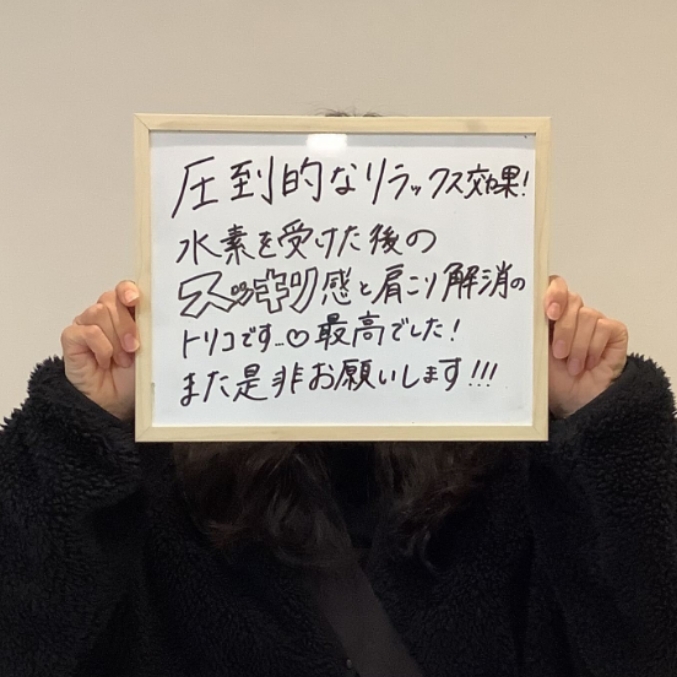 圧倒的なリラックス効果!
水素を受けた後の
スッキリ感と肩こり解消の
トリコです…♡最高でした!
また是非お願いします!!!